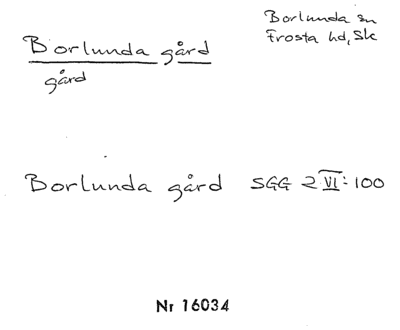 Borlunda gård
gård
Borlunda sn
Frosta hd, Sk
Borlunda gård SGG 2 VI:100
Nr 16034